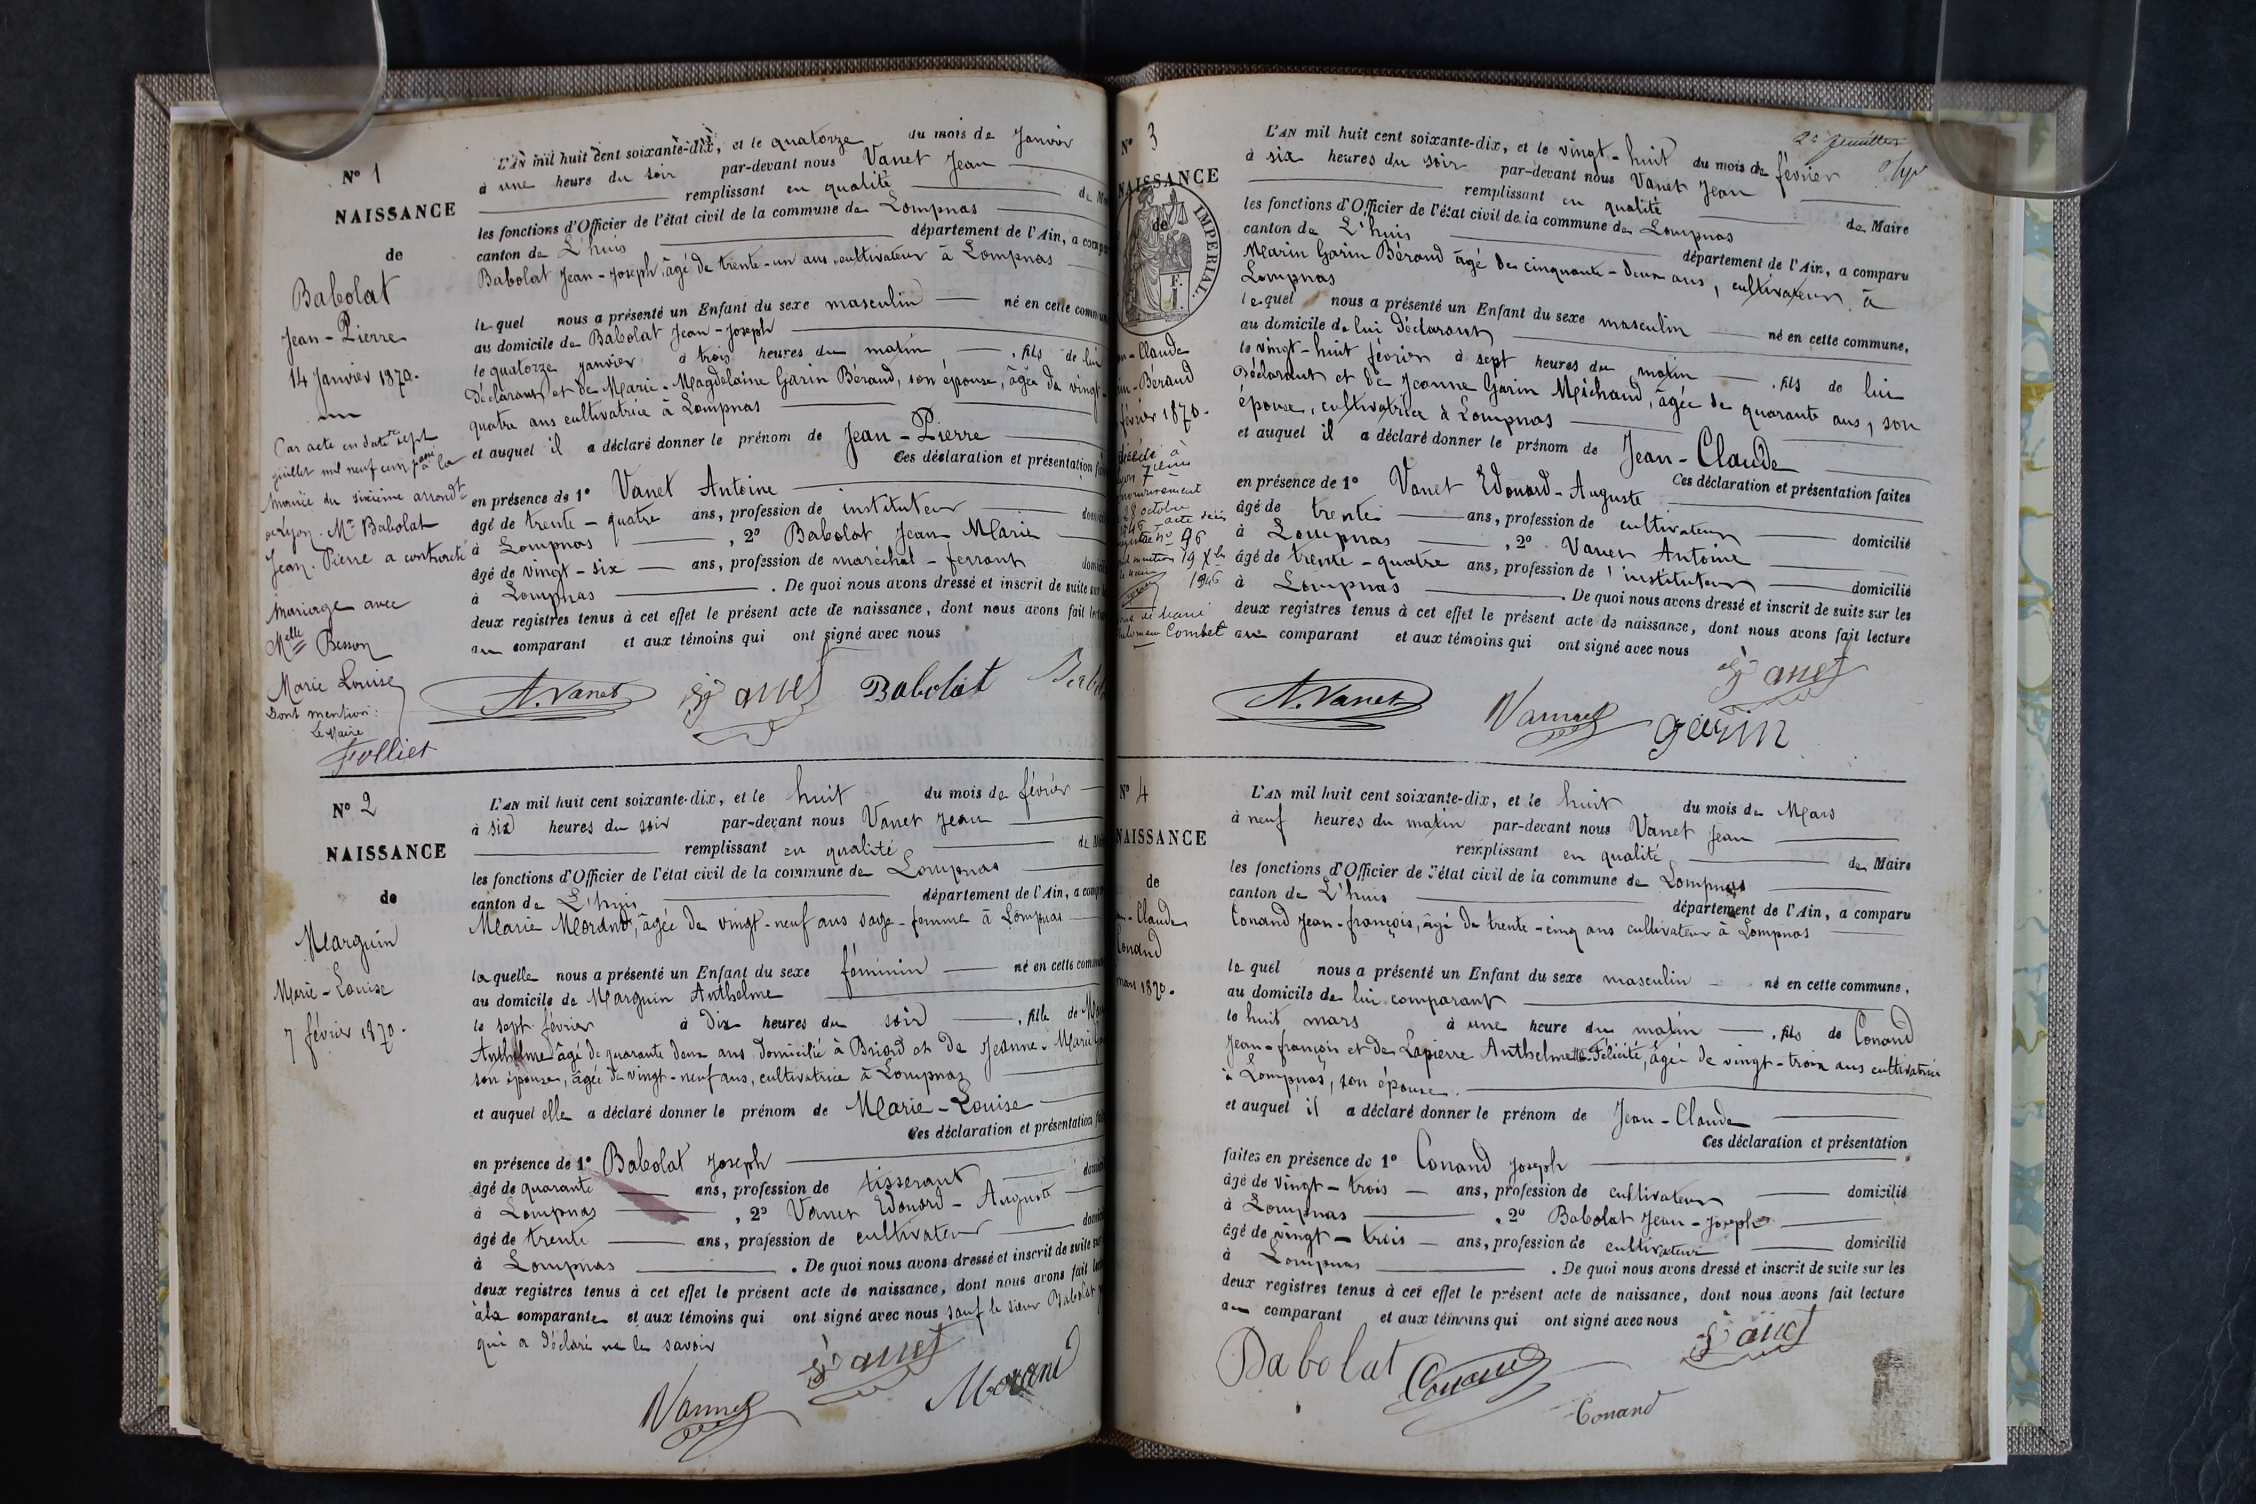 N° 1
NAISSANCE
de
Babolat
Jean-Pierre
14 Janvier 1870.
Par acte en date sept
juillet mil neuf cent passé à la
Mairie du sixième arrondt
de Lyon. Mr Babolat
Jean-Pierre a contracté
mariage avec
Melle Besson
Marie Louise
Dont mention:
Le Maire
Folliet
L'AN mil huit cent soixante-dix, et le quatorze du mois de Janvier
à une heure du soir par-devant nous Vanet Jean
remplissant en qualité de
les fonctions d'Officier de l'état civil de la commune de Lompnas
canton de L'huis département de l'Ain, a
Babolat Jean-Joseph, âgé de trente-un ans cultivateur à Lompnas
lequel nous a présenté un Enfant du sexe masculin né en cette
au domicile de Babolat Jean-Joseph
le quatorze janvier à trois heures du matin, fils de lui
Déclarant et de Marie-Magdelaine Garin Béraud, son épouse, âgée de vingt-
quatre ans cultivatrice à Lompnas
et auquel il a déclaré donner le prénom de Jean-Pierre
Ces déclaration et présentation
en présence de 1° Vanet Antoine
âgé de trente-quatre ans, profession de instituteur
à Lompnas, 2° Babolat Jean Marie
âgé de vingt-six ans, profession de maréchal-ferrant
à Lompnas. De quoi nous avons dressé et inscrit de suite sur
deux registres tenus à cet effet le présent acte de naissance, dont nous avons fait
au comparant et aux témoins qui ont signé avec nous
A. Vanet Vanet Babolat
N° 2
NAISSANCE
de
Marguin
Marie-Louise
7 février 1870.
L'AN mil huit cent soixante-dix, et le huit du mois de février
à six heures du soir par-devant nous Vanet Jean
remplissant en qualité de
les fonctions d'Officier de l'état civil de la commune de Lompnas
canton de L'huis département de l'Ain, a
Marie Morand, âgée de vingt-neuf ans sage-femme à Lompnas
laquelle nous a présenté un Enfant du sexe féminin né en cette
au domicile de Marguin Anthelme
le sept février à dix heures du soir, fille de
Anthelme âgé de quarante deux ans domicilié à Briord et de Jeanne-Marie
son épouse, âgée de vingt-neuf ans, cultivatrice à Lompnas
et auquel elle a déclaré donner le prénom de Marie-Louise
Ces déclaration et présentation
en présence de 1° Babolat Joseph
âgé de quarante ans, profession de tisserant
à Lompnas, 2° Vanet Edouard-Auguste
âgé de trente ans, profession de cultivateur
à Lompnas. De quoi nous avons dressé et inscrit de suite sur
deux registres tenus à cet effet le présent acte de naissance, dont nous avons fait
à la comparante et aux témoins qui ont signé avec nous sauf le sieur Babolat
qui a déclaré ne le savoir
Vannet Vanet Morand
2e feuillet
N° 3
NAISSANCE
de
IMPERIAL
-Claude
-Béraud
février 1870.
décédé à
Lyon 7ième
28 octobre
N° 96
19 Xbre
1946
Combet
L'AN mil huit cent soixante-dix, et le vingt-huit du mois de février
à six heures du soir par-devant nous Vanet Jean
remplissant en qualité de Maire
les fonctions d'Officier de l'état civil de la commune de Lompnas
canton de L'huis département de l'Ain, a comparu
Marin Garin Béraud âgé de cinquante-deux ans, cultivateur à
Lompnas
lequel nous a présenté un Enfant du sexe masculin né en cette commune,
au domicile de lui déclarant
le vingt-huit février à sept heures du matin, fils de lui
Déclarant et de Jeanne Garin Michaud, âgée de quarante ans, son
épouse, cultivatrice à Lompnas
et auquel il a déclaré donner le prénom de Jean-Claude
Ces déclaration et présentation faites
en présence de 1° Vanet Edouard-Auguste
âgé de trente ans, profession de cultivateur domicilié
à Lompnas, 2° Vanet Antoine
âgé de trente-quatre ans, profession de instituteur domicilié
à Lompnas. De quoi nous avons dressé et inscrit de suite sur les
deux registres tenus à cet effet le présent acte de naissance, dont nous avons fait lecture
au comparant et aux témoins qui ont signé avec nous
A. Vanet Vannet garin Vanet
N° 4
NAISSANCE
de
-Claude
Conand
mars 1870.
L'AN mil huit cent soixante-dix, et le huit du mois de Mars
à neuf heures du matin par-devant nous Vanet Jean
remplissant en qualité de Maire
les fonctions d'Officier de l'état civil de la commune de Lompnas
canton de L'huis département de l'Ain, a comparu
Conand Jean-françois, âgé de trente-cinq ans cultivateur à Lompnas
lequel nous a présenté un Enfant du sexe masculin né en cette commune,
au domicile de lui comparant
le huit mars à une heure du matin, fils de Conand
Jean-françois et de Lapierre Anthelmette-Félicité, âgée de vingt-trois ans cultivatrice
à Lompnas, son épouse.
et auquel il a déclaré donner le prénom de Jean-Claude
Ces déclaration et présentation
faites en présence de 1° Conand Joseph
âgé de vingt-trois ans, profession de cultivateur domicilié
à Lompnas, 2° Babolat Jean-Joseph
âgé de vingt-trois ans, profession de cultivateur domicilié
à Lompnas. De quoi nous avons dressé et inscrit de suite sur les
deux registres tenus à cet effet le présent acte de naissance, dont nous avons fait lecture
au comparant et aux témoins qui ont signé avec nous
Babolat Conand Conand Vanet